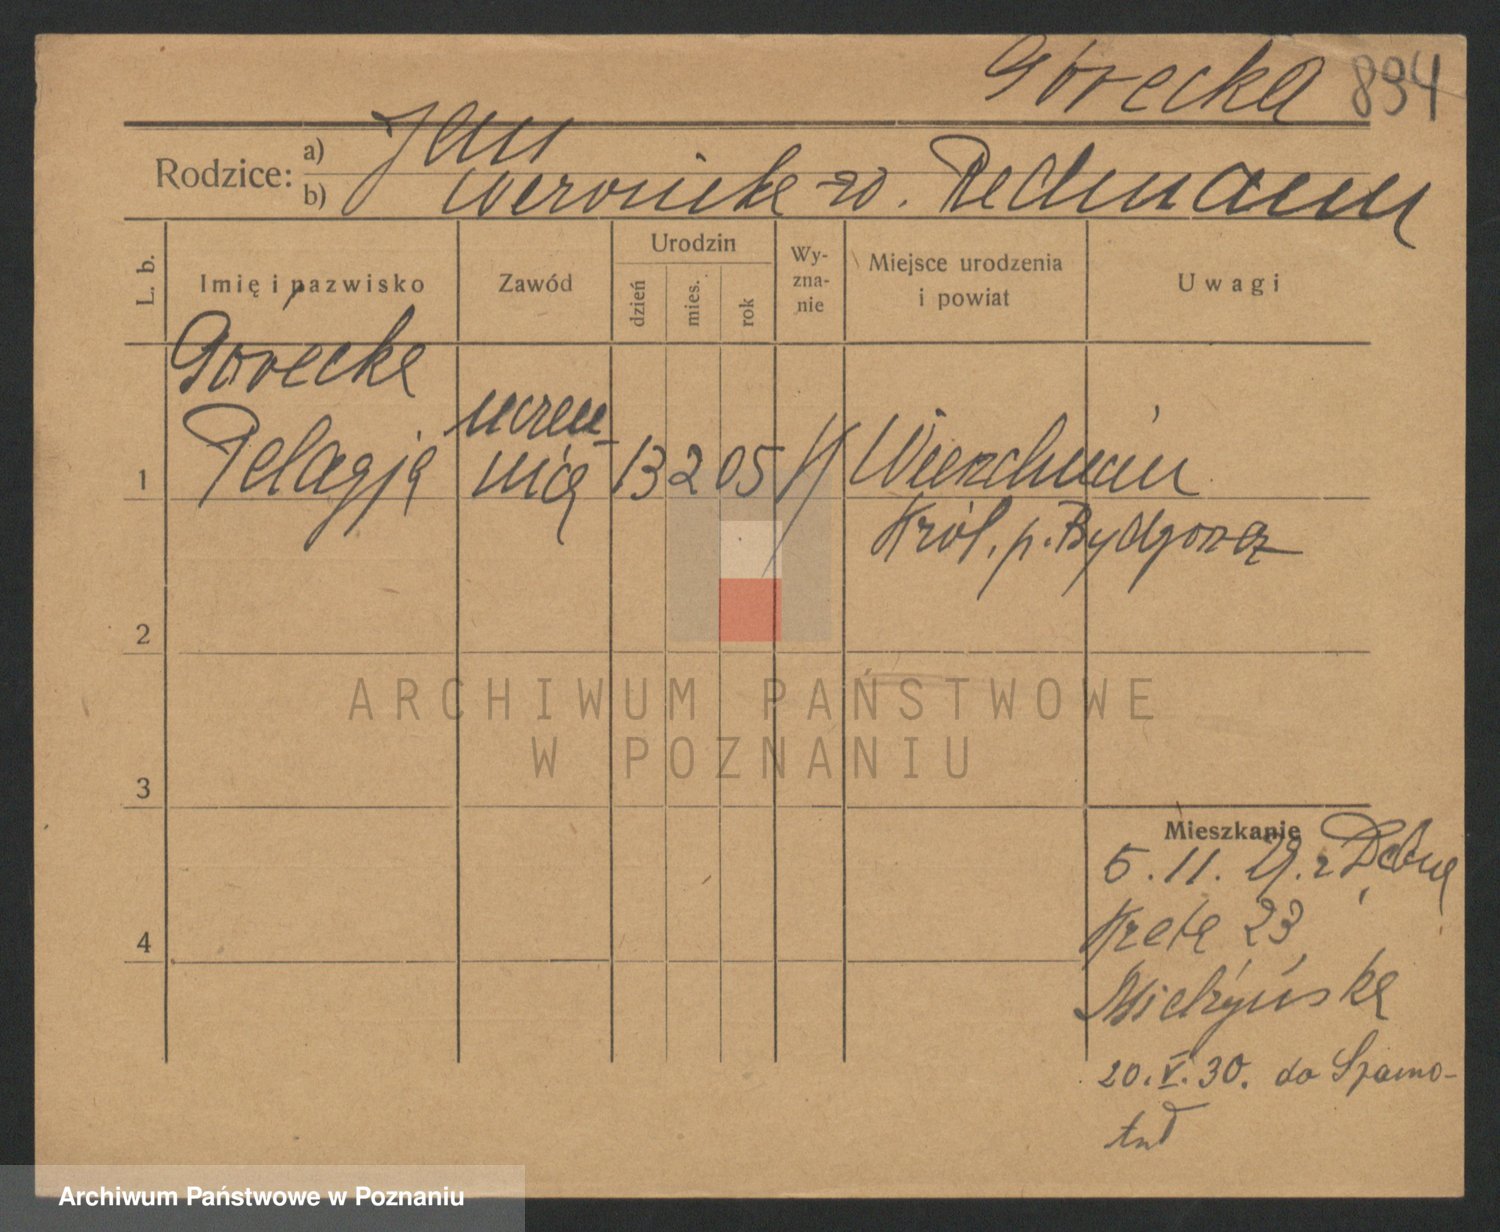 Górecka 894
Rodzice:
a) Jan
b) Weronika zd. Redmann
L. b.
Imię i nazwisko
Zawód
Urodzin
dzień
mies.
rok
Wy-
zna-
nie
Miejsce urodzenia
i powiat
Uwagi
Górecka
Pelagja
uczen-
nica
1
13 2 05
Wierzchucin
Król. p. Bydgoszcz
2
3
4
ARCHIWUM PAŃSTWOWE
W POZNANIU
Mieszkanie
5.11.29. z
23
20.V.30. do Szamo-
tuł
Archiwum Państwowe w Poznaniu